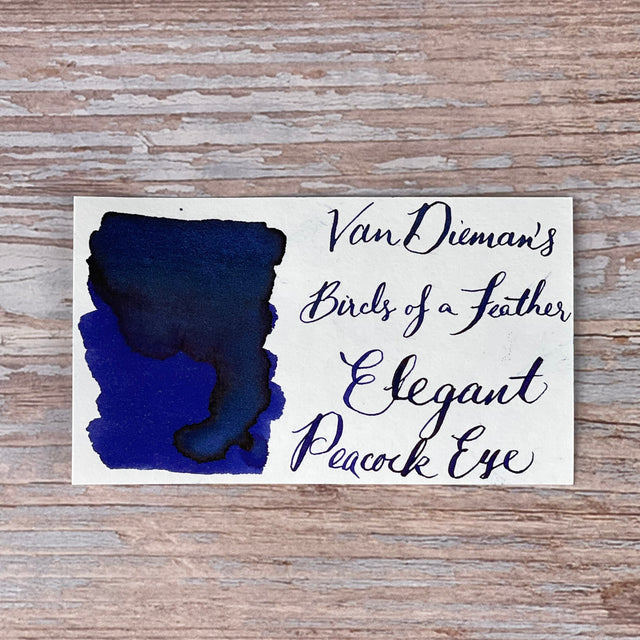 Van Dieman's
Birds of a Feather
Elegant
Peacock Eye